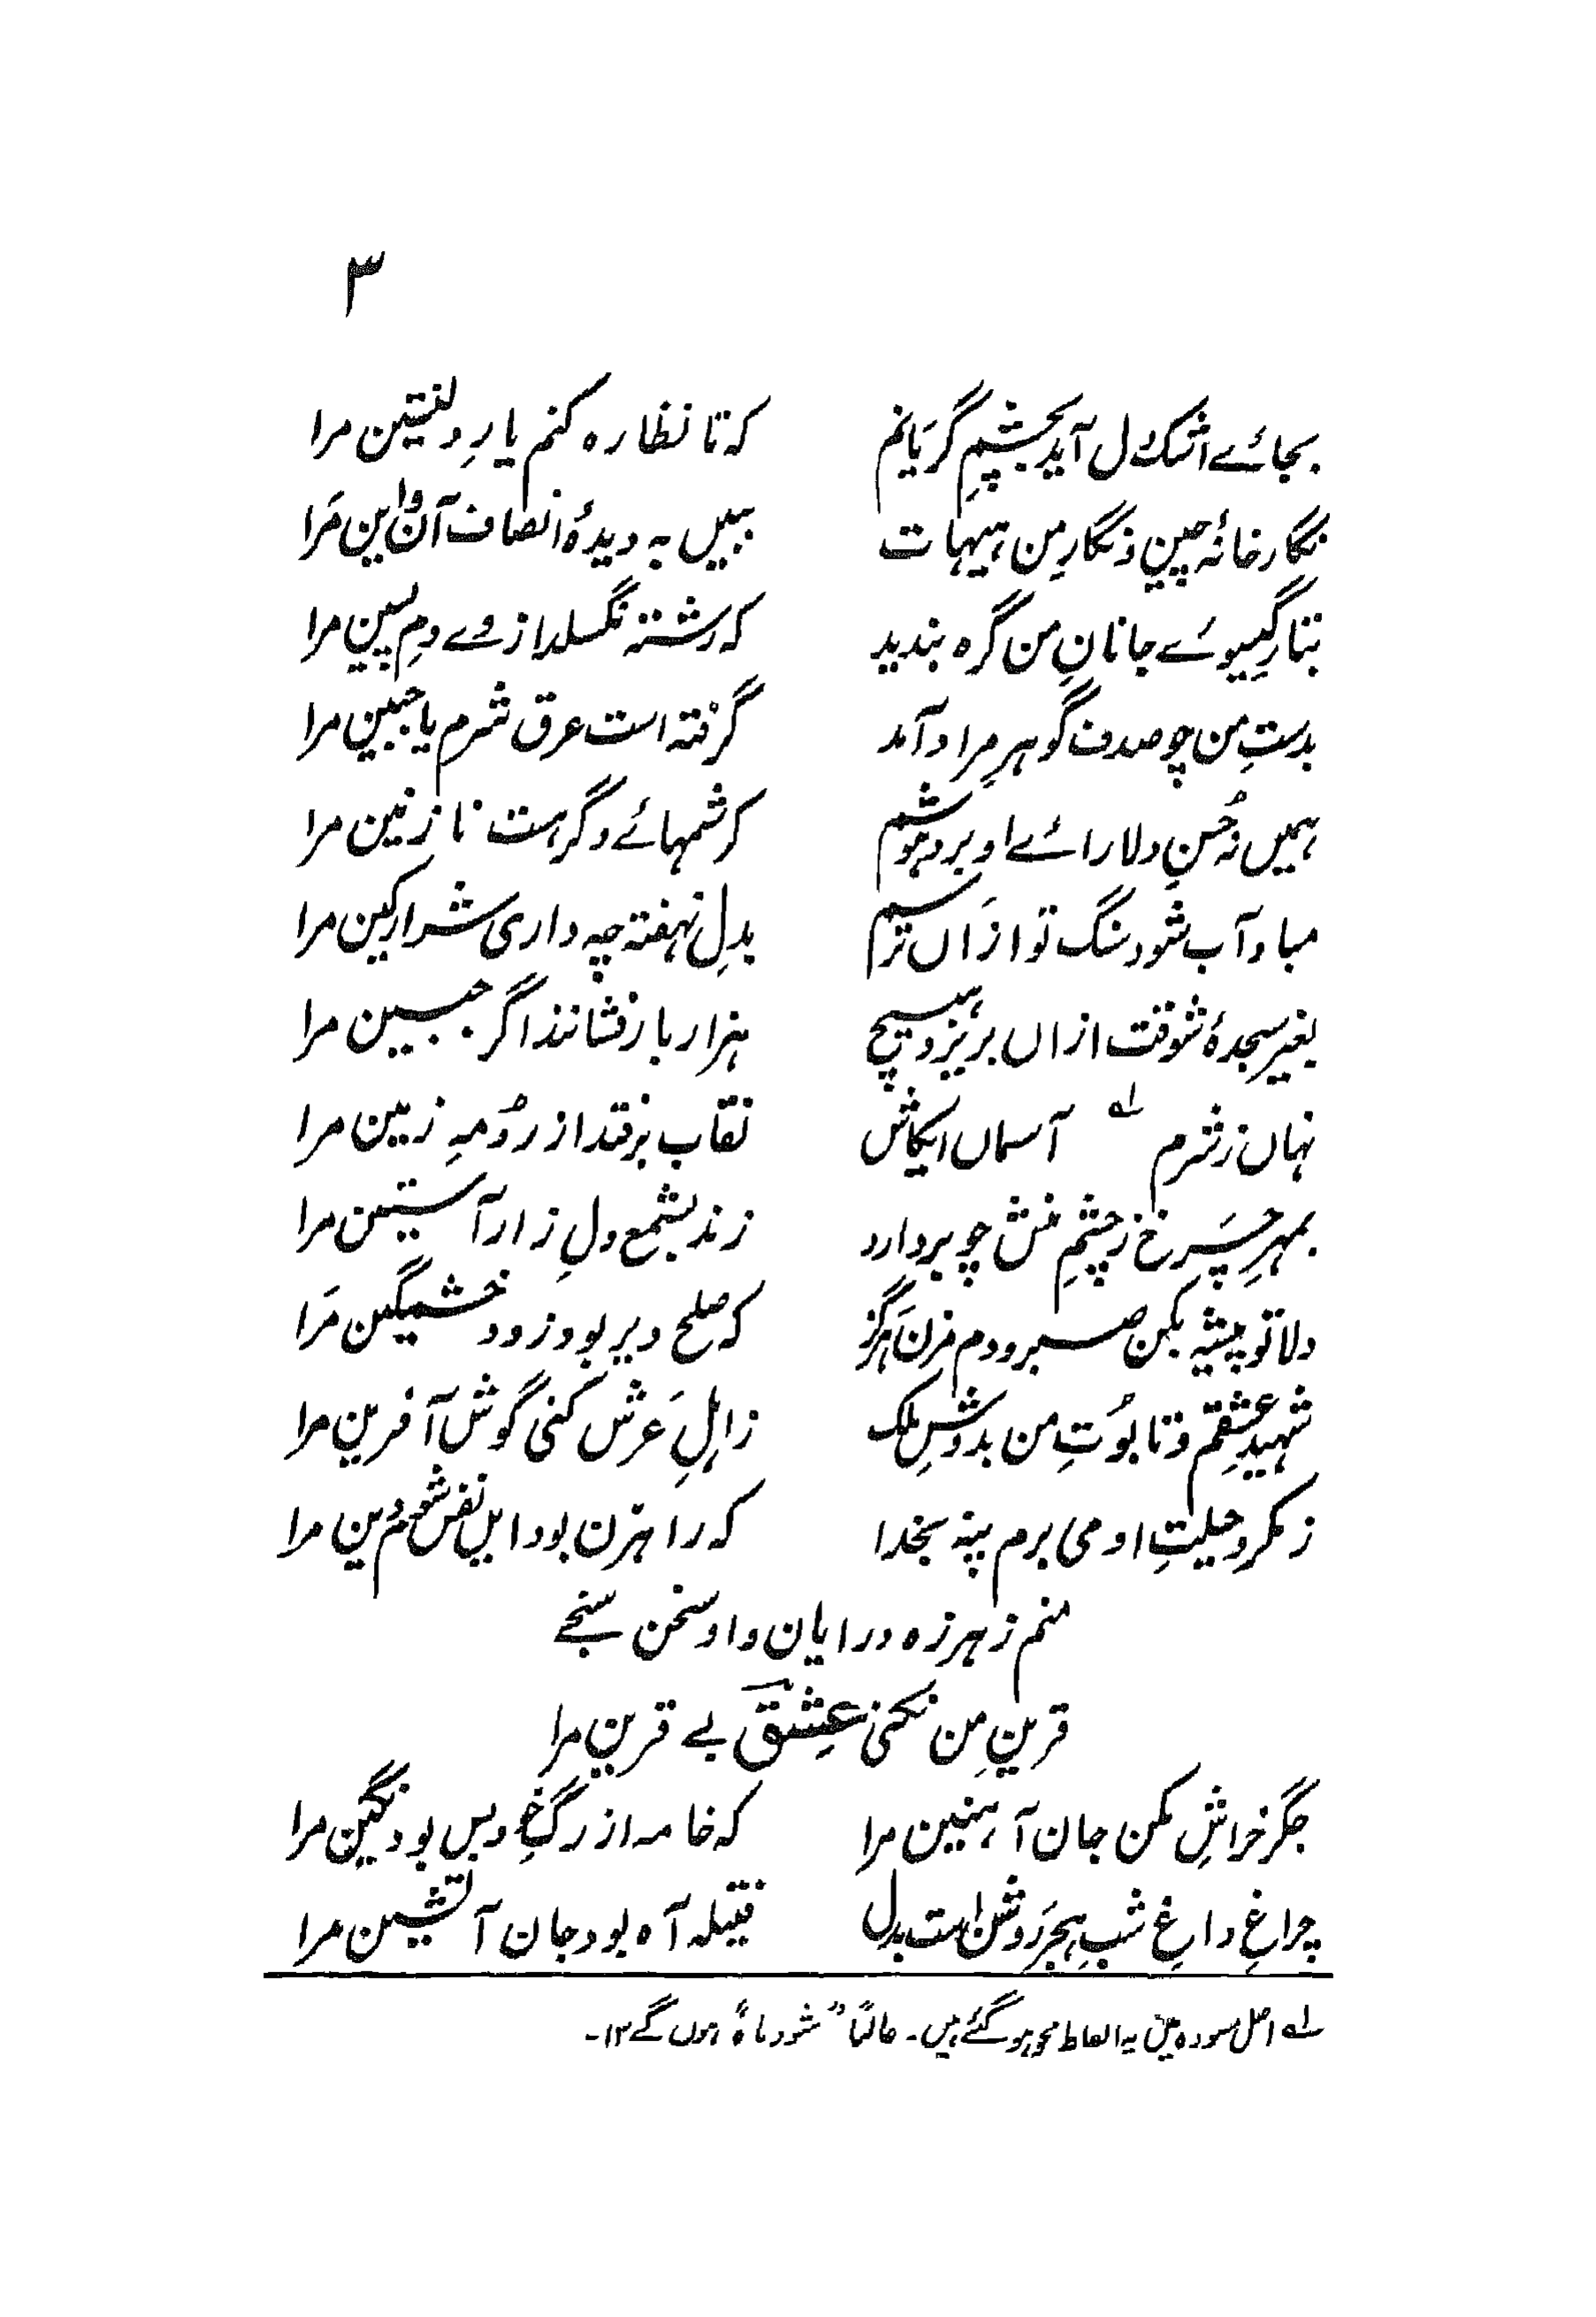 ۳
بجائے اشک دل آید بچشمِ گریَانم کہ تا نظارہ کنم یارِ دلنشین مرا
نگارخانۂ چین و نگارِ من ہیہات ببیں بہ دیدۂ انصاف آن و این مَرا
بتارِ گیسوئے جانانِ من گرہ بندید کہ رشتہ نگسلد از وے دمِ پسین مرا
بدستِ من چو صدف گوہرِ مراد آمد گرفتہ است عرق شرم یا جبین مرا
ہمیں نہ حُسنِ دلارائے او برد ہوشم کرشمہائے دگرہست نازنین مرا
مباد آب شود سنگ تو ازاں ترسم بدلِ نہفتہ چہ داری شرارِ کین مرا
بغیر سجدۂ شوقت ازاں بریزد ہیچ ہزار بار فشانند اگر جبین مرا
نہاں ز شرم لہ آسماں ایکاش نقاب برفتد از رؤمہِ زمین مرا
بمہرِ چَرخ ز چشمِ منش چو بردارد زند بشمع دلِ زار آستین مرا
دلا تو پیشہ بکن صبر و دم مزن ہَرگز کہ صلح دیر بود زود خشمگین مَرا
شہیدِ عشقم و تابوُتِ من بدوشِ ملک ز اہلِ عَرش کنی گوش آفرین مرا
ز مکر و حیلتِ او می برم پنہ بخدا کہ راہزن بود ایں نفس شوم دین مرا
منم ز ہرزہ درایان و او سخن سنجے
قرینِ من نکنی عِشق بے قرین مرا
جگر خراشِ مکن جان آہنین مرا کہ خامہ از رگِ خود بس بود نگین مرا
چراغِ داغِ شبِ ہجر رَوشن است بدل فتیلہ آہ بود جان آتشین مرا
لہ اصل مسودہ میں یہ الفاظ محو ہو گئے ہیں۔ غالبًا "شود ماہ" ہوں گے ۱۲۔